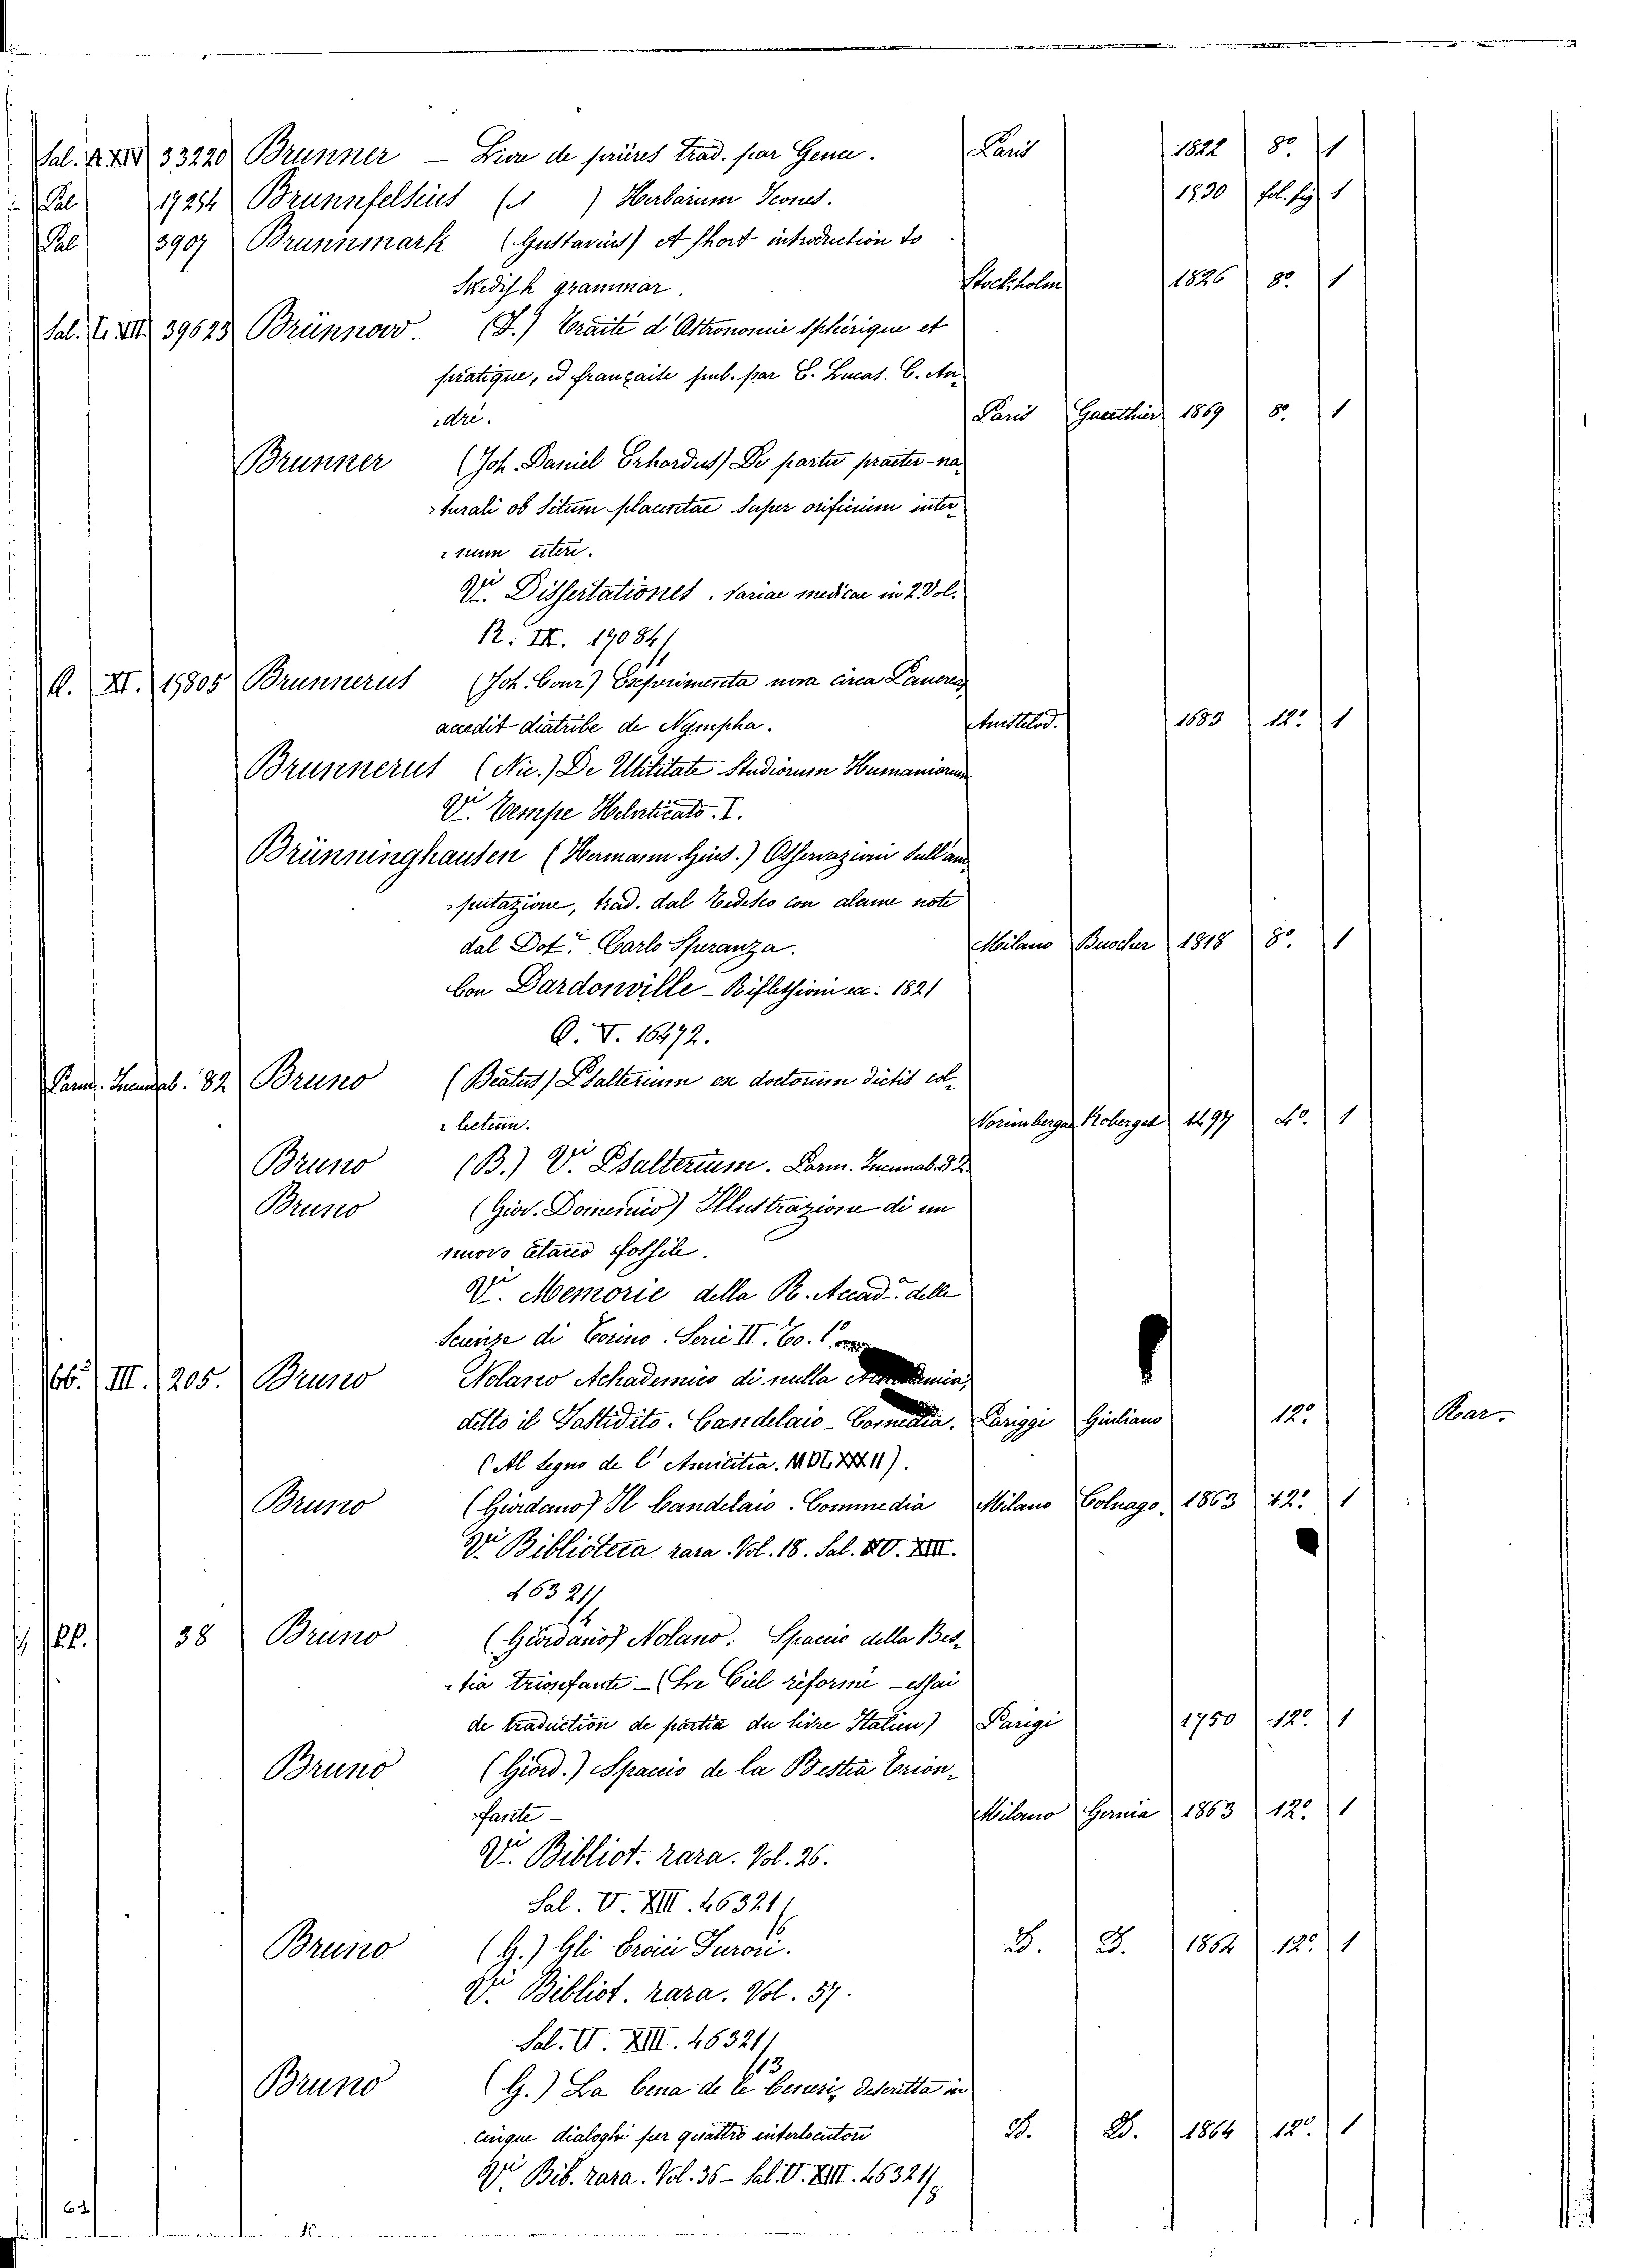 Sal. XIV 33220 Brunner — Livre de prières trad. par Genu. Paris 1822 8º. 1
Pal 17254 Brunnfelsius ( ) Herbarum Icones. 1530 fol. fig. 1
Pal 3907 Brunnmark (Gustavius) A short introduction to
Swedish grammar. Stockholm 1826 8º 1
Sal. XIII 39623 Brünnow. (F.) Traité d'Astronomie sphérique et
pratique, ed française pub. par E. Lucas. C. An-
dré. Paris Gauthier 1869 8º. 1
Brunner (Joh. Daniel Erhardus) De partu praeter-na-
turali ob Situm placentae super orificium inter-
num uteri.
Vi. Dissertationes variae medicae in 2 Vol.
R. IX. 19084/
XI. 19805 Brunnerus (Joh. Conr.) Experimenta nova circa Pancreas
accedit diatribe de Nympha. Amstelod. 1683 12º. 1
Brunnerus (Nic.) De Utilitate Studiorum Humaniorum
Vi Tempe Helveticato. I.
Brünninghausen (Hermann Gius.) Osservazioni sull'am-
putazione, trad. dal Tedesco con alcune note
dal Dot. Carlo Speranza. Milano Buocher 1818 8º. 1
Con Dardonville - Riflessioni ec: 1821
Q. V. 16472.
Parm. Incunab. 82 Bruno (Beatus) Psalterium ex doctorum dictis col-
lectum. Norimbergae Koberger 1497 4º. 1
Bruno (B.) Vi. Psalterium. Parm. Incunab. 82
Bruno (Giov. Domenico) Illustrazione di un
nuovo Cetaceo fossile.
Vi. Memorie della R. Accad. delle
Scienze di Torino. Serie II. To. 1º
III. 205. Bruno Nolano Achademico di nulla
detto il Fastidito. Candelaio - Comedia. Pariggi Giuliano 12º Rar.
(Al Segno de l'Amicitia.
Bruno (Giordano) Il Candelaio. Commedia Milano Colnago 1863 12º 1
Vi Biblioteca rara. Vol. 18. Sal. V. XIII.
46321/
38 Bruno (Giordano) Nolano. Spaccio della Bes-
tia trionfante — (Le Ciel réformé - essai
de traduction de partie du livre Italien) Parigi 1750 12º. 1
Bruno (Giord.) Spaccio de la Bestia Trion-
fante — Milano Gernia 1863 12º. 1
Vi. Bibliot. rara. Vol. 26.
Sal. V. XIII. 46321/
Bruno (G.) Gli Eroici Furori. D. D. 1864 12º. 1
Vi Bibliot. rara. Vol. 57.
Sal. V. XIII. 46321/
13
Bruno (G.) La Cena de le Ceneri, descritta in
cinque dialoghi per quattro interlocutori D. D. 1864 12º. 1
Vi. Bib. rara. Vol. 36 - Sal. V. XIII. 46321/8
62